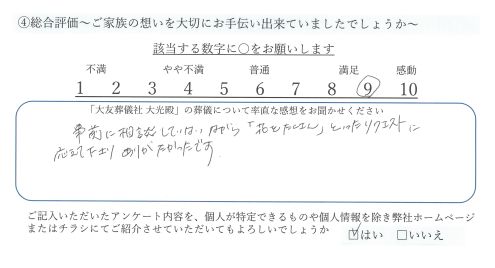 ④総合評価~ご家族の想いを大切にお手伝い出来ていましたでしょうか~
該当する数字に○をお願いします
不満 やや不満 普通 満足 感動
1 2 3 4 5 6 7 8 9 10
「大友葬儀社 大光殿」の葬儀について率直な感想をお聞かせください
事前に相談していないながら「花をたくさん」といったリクエストに
応えて下さりありがたかったです。
ご記入いただいたアンケート内容を、個人が特定できるものや個人情報を除き弊社ホームページ
またはチラシにてご紹介させていただいてもよろしいでしょうか ☑はい □いいえ